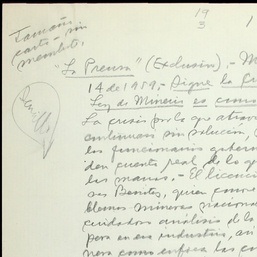 19
3
1
Tamaño
carta - sin
membrete.
"La Prensa" (Exclusivo).- M
14 de 1959.- Sigue la
Ley de Minería es
La crisis por la que atrav
continuan sin solucion,
los funcionarios gubern
den cuenta real de lo q
las manos.- El licenci
sus Benitez, quien conoce
blemas mineros naciona
cuidadoso análisis de la
pera en esa industria, si
nera como enfoca las co